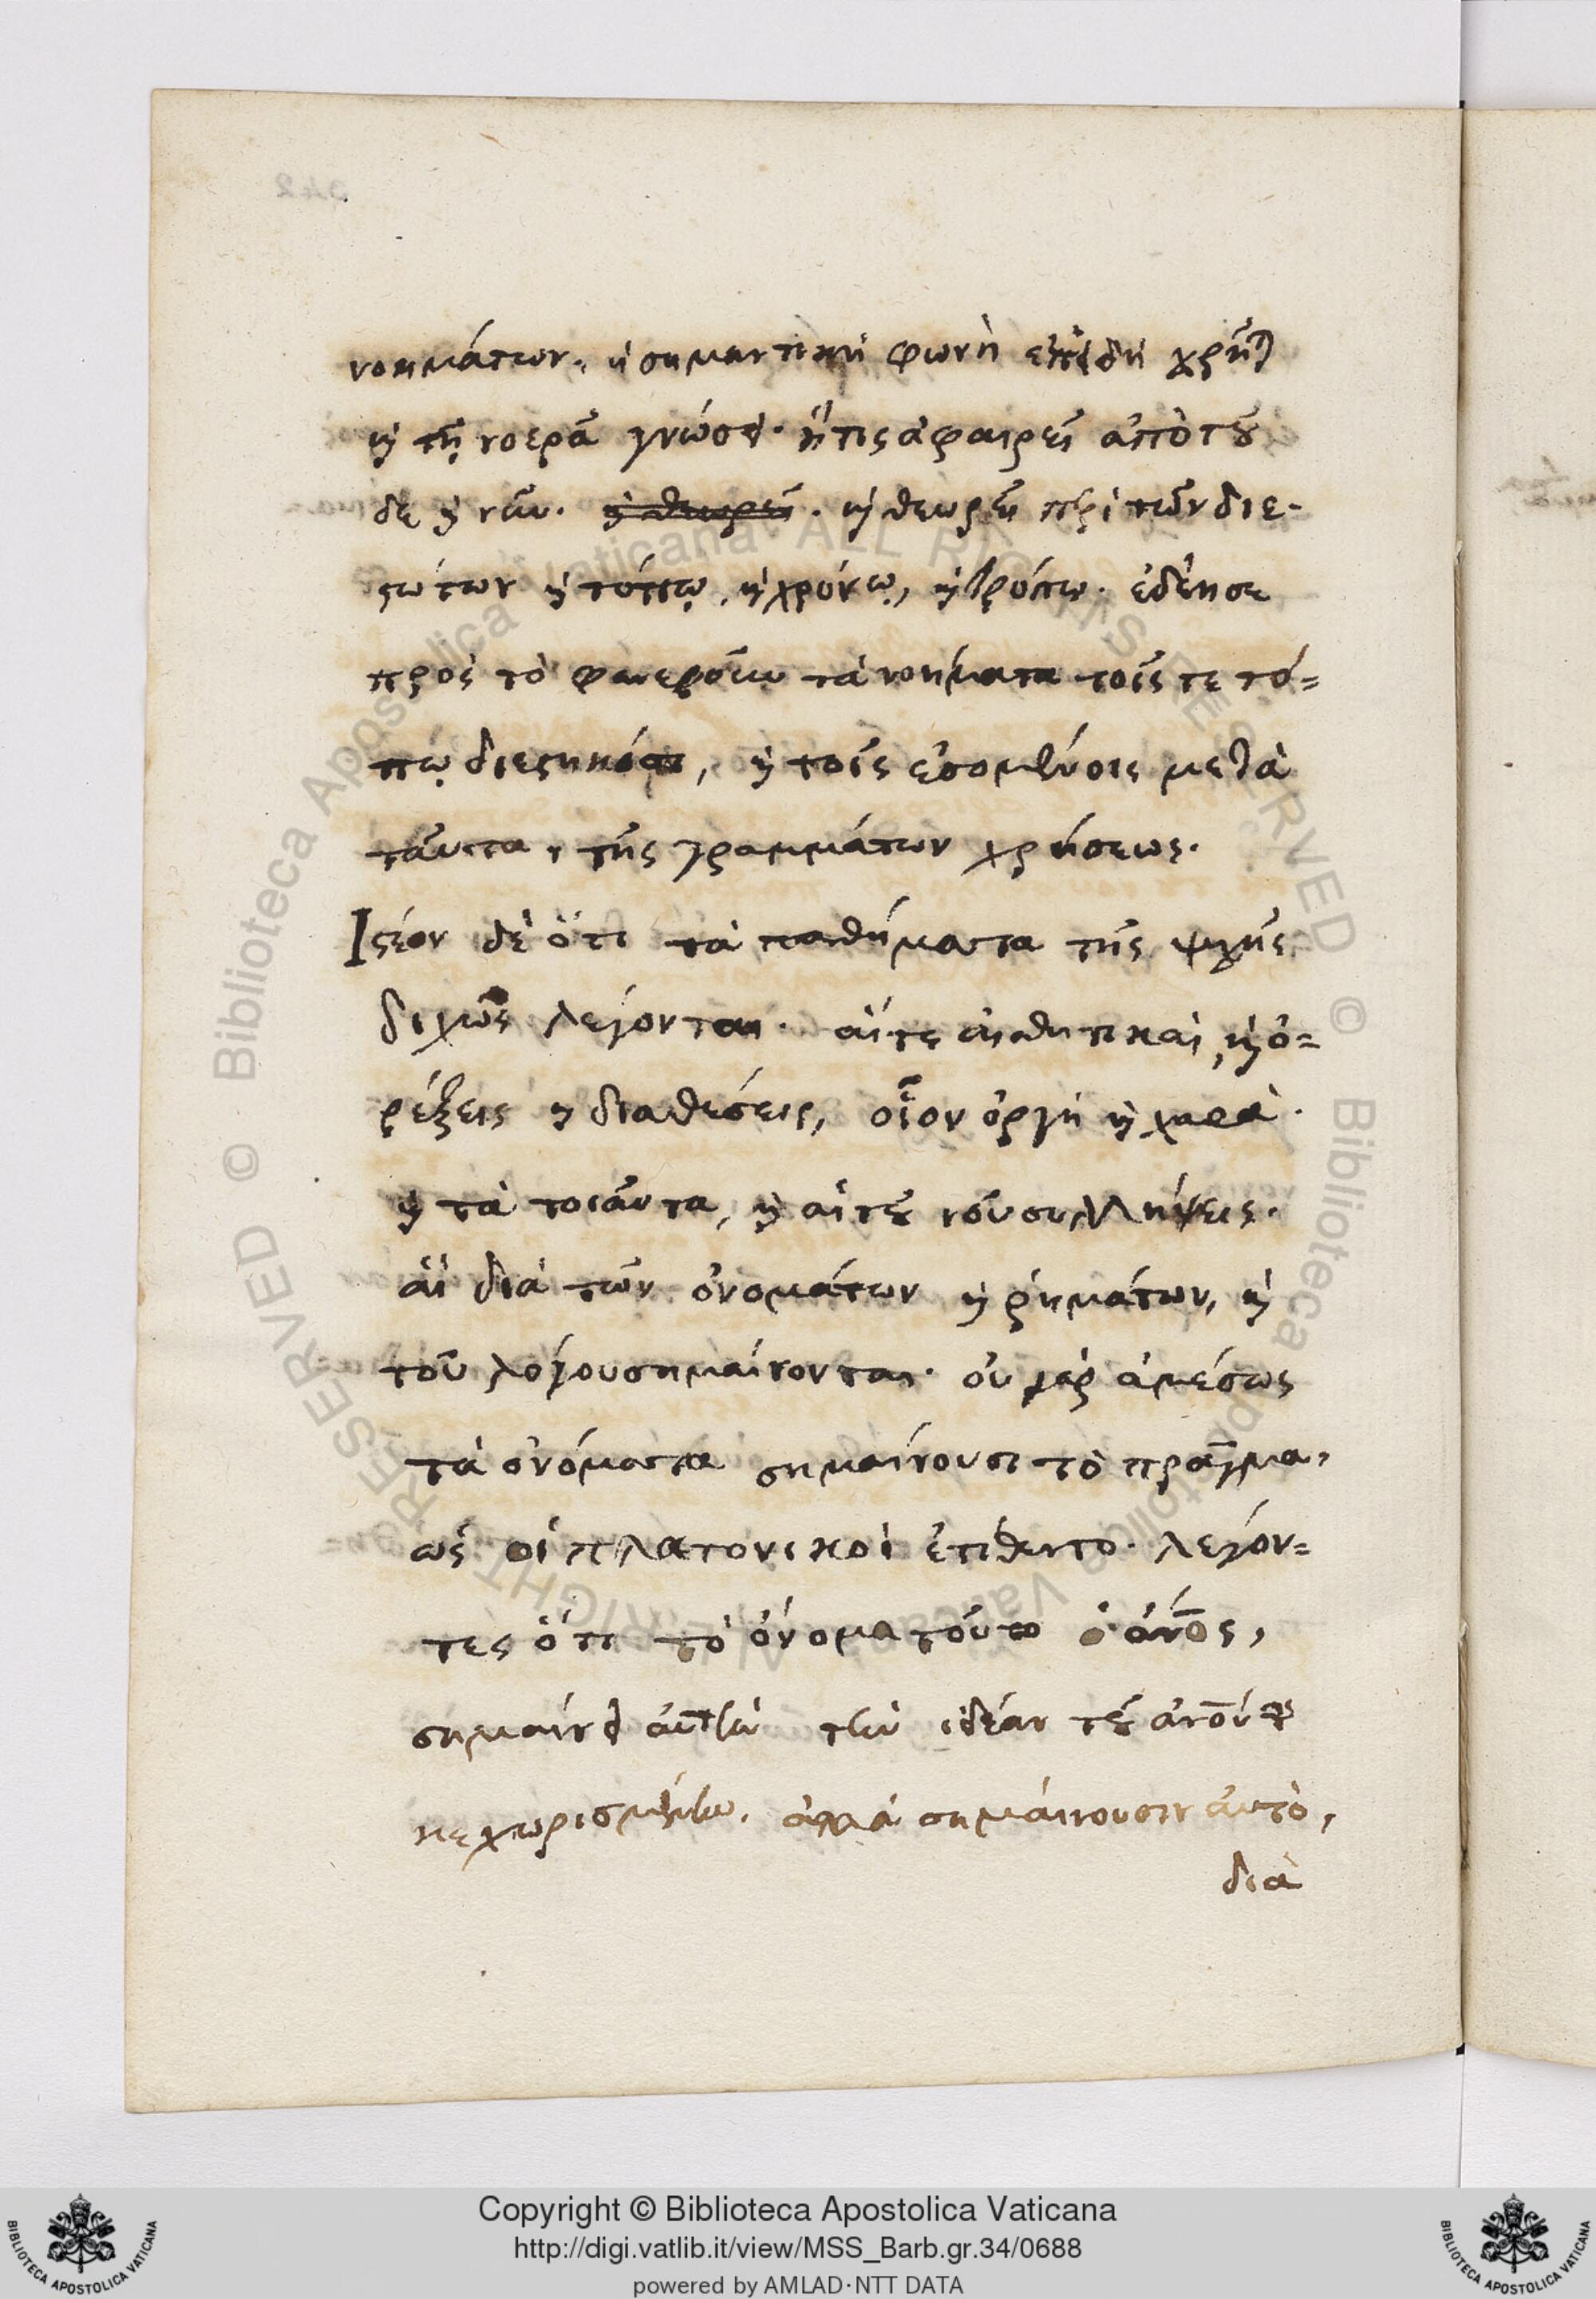 νοημάτων. ἡ σημαντικὴ φωνὴ ἐπειδὴ χρῆται
καὶ τῇ νοερᾷ γνώσει. ἥτις ἀφαιρεῖ ἀπὸ τοῦ
δε καὶ νῦν. καὶ θεωρεῖ. καὶ θεωρεῖ περὶ τῶν διε-
στώτων καὶ τόπῳ, καὶ χρόνῳ, καὶ τρόπῳ. ἐδέησε
πρὸς τὸ φανεροῦν τὰ νοήματα τοῖς τε τό=
πῳ διεστηκόσι, καὶ τοῖς ἐσομένοις μετὰ
ταῦτα, τῆς γραμμάτων χρήσεως.
Ἰστέον δὲ ὅτι τὰ παθήματα τῆς ψυχῆς
διχῶς λέγονται. αἵτε αἰσθητικαὶ, καὶ ὀ=
ρέξεις καὶ διαθέσεις, οἷον ὀργὴ καὶ χαρὰ.
καὶ τὰ τοιαῦτα, καὶ αἱ τοῦ νοῦ συλλήψεις.
αἳ διὰ τῶν ὀνομάτων καὶ ῥημάτων, καὶ
τοῦ λόγου σημαίνονται. οὐ γὰρ ἀμέσως
τὰ ὀνόματα σημαίνουσι τὸ πρᾶγμα,
ὡς οἱ πλατονικοὶ ἐπίθεντο. λέγον=
τες ὅτι τὸ ὄνομα τοῦτο ὁ ἄνος,
σημαίνει αὐτὴν τὴν ἰδέαν τοῦ ἀνού
κεχωρισμένην. ἀλλὰ σημαίνουσιν αὐτὸ,
διὰ
Copyright © Biblioteca Apostolica Vaticana
http://digi.vatlib.it/view/MSS_Barb.gr.34/0688
powered by AMLAD·NTT DATA